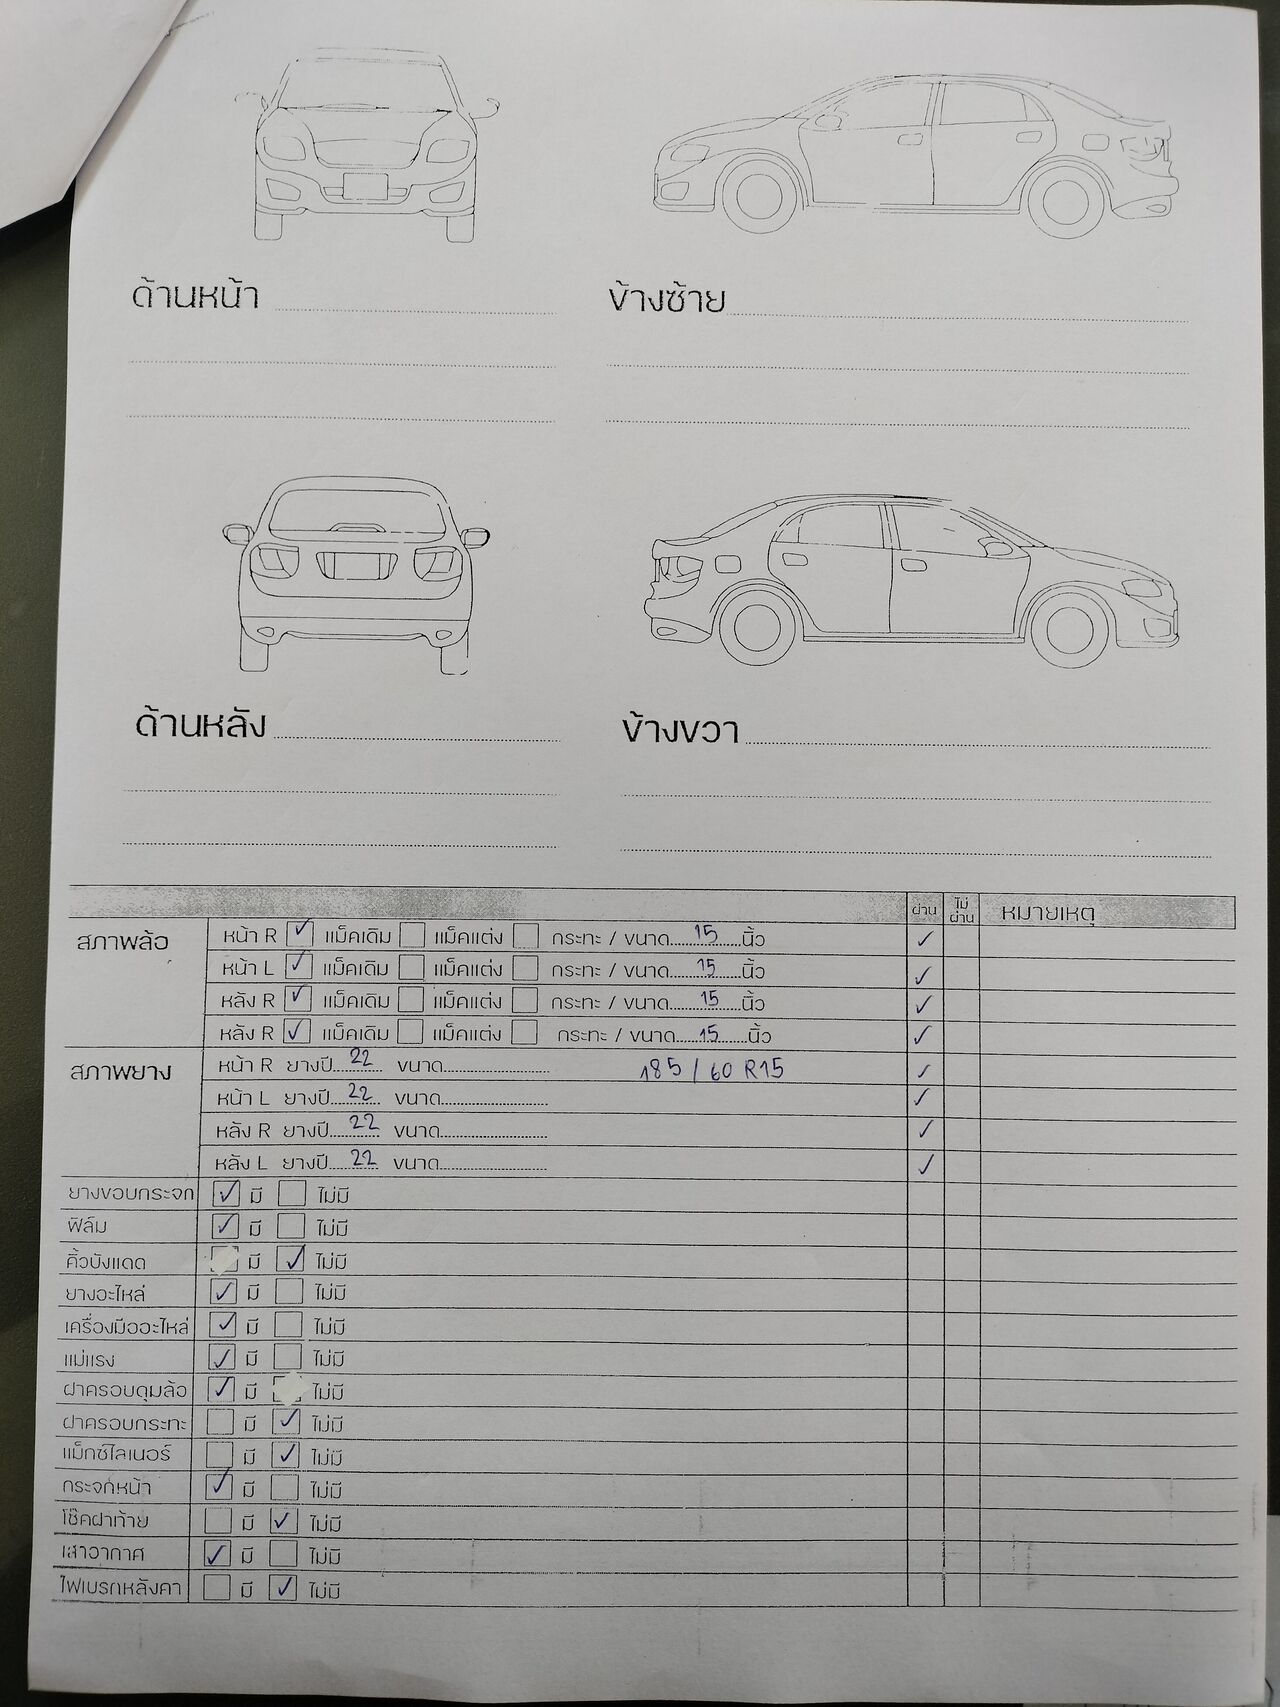 ด้านหน้า
ข้างซ้าย
ด้านหลัง
ข้างขวา
ผ่าน ไม่ผ่าน หมายเหตุ
สภาพล้อ หน้า R ✓ แม็คเดิม แม็คแต่ง กระทะ / ขนาด 15 นิ้ว ✓
หน้า L ✓ แม็คเดิม แม็คแต่ง กระทะ / ขนาด 15 นิ้ว ✓
หลัง R ✓ แม็คเดิม แม็คแต่ง กระทะ / ขนาด 15 นิ้ว ✓
หลัง R ✓ แม็คเดิม แม็คแต่ง กระทะ / ขนาด 15 นิ้ว ✓
สภาพยาง หน้า R ยางปี 22 ขนาด 185 / 60 R15 ✓
หน้า L ยางปี 22 ขนาด ✓
หลัง R ยางปี 22 ขนาด ✓
หลัง L ยางปี 22 ขนาด ✓
ยางขอบกระจก ✓ มี ไม่มี
ฟิล์ม ✓ มี ไม่มี
คิ้วบังแดด มี ✓ ไม่มี
ยางอะไหล่ ✓ มี ไม่มี
เครื่องมืออะไหล่ ✓ มี ไม่มี
แม่แรง ✓ มี ไม่มี
ฝาครอบดุมล้อ ✓ มี ไม่มี
ฝาครอบกระทะ มี ✓ ไม่มี
แม็กซ์ไลเนอร์ มี ✓ ไม่มี
กระจกหน้า ✓ มี ไม่มี
โช๊คฝาท้าย มี ✓ ไม่มี
เสาอากาศ ✓ มี ไม่มี
ไฟเบรกหลังคา มี ✓ ไม่มี